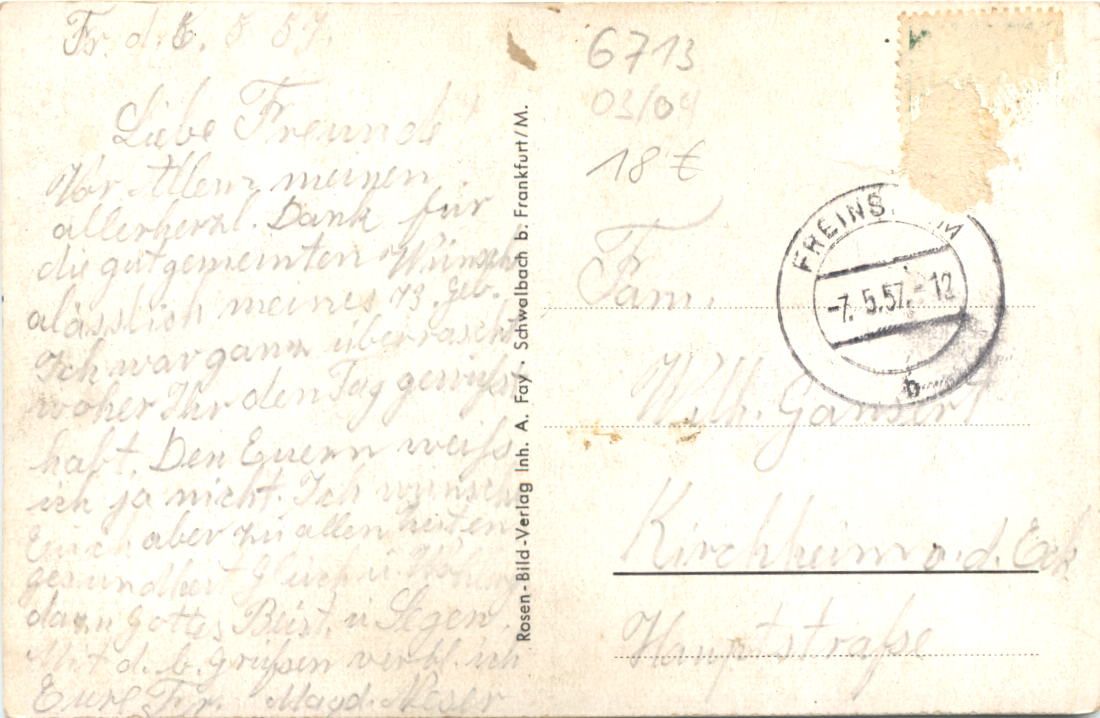 Fr. d. 6. 5. 57.
Liebe Freunde!
Vor Allem meinen
allerherzl. Dank für
die gutgemeinten Wünsche
alässlich meines 73. Geb.
Ich war ganz überrascht
woher Ihr den Tag gewußt
habt. Den Euern weiß
ich ja nicht. Ich wünsche
Euch aber zu allen Zeiten
gesundheit Glück u.
dazu Gottes Beist. u Segen.
Mit d. b. Grüßen verbl. ich
Eure Fr. Magd. Neser
Rosen-Bild-Verlag Inh. A. Fay · Schwalbach b. Frankfurt/M.
6713
03/04
18 €
FREINS M
-7. 5.57.-12
b
Fam.
Wilh. Gansert
Kirchheim a. d. Eck
Hauptstraße